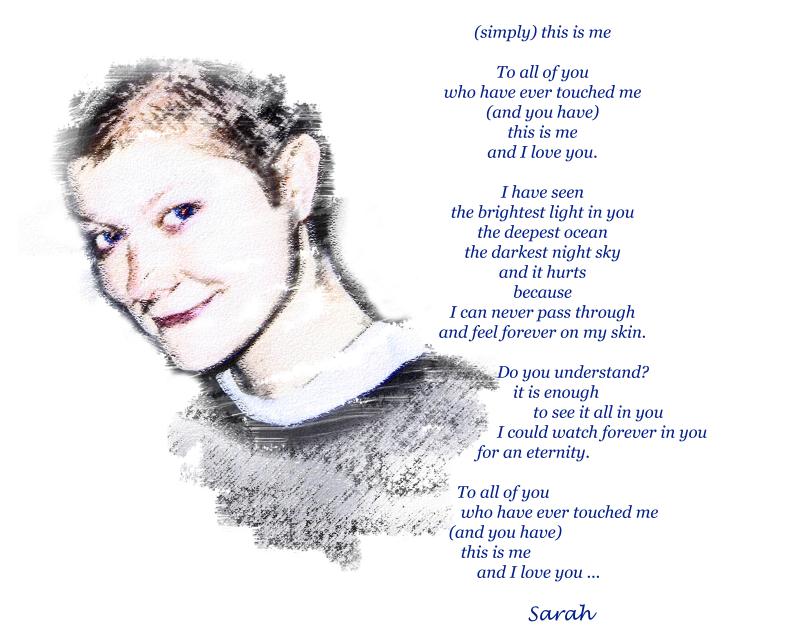 (simply) this is me
To all of you
who have ever touched me
(and you have)
this is me
and I love you.
I have seen
the brightest light in you
the deepest ocean
the darkest night sky
and it hurts
because
I can never pass through
and feel forever on my skin.
Do you understand?
it is enough
to see it all in you
I could watch forever in you
for an eternity.
To all of you
who have ever touched me
(and you have)
this is me
and I love you ...
Sarah